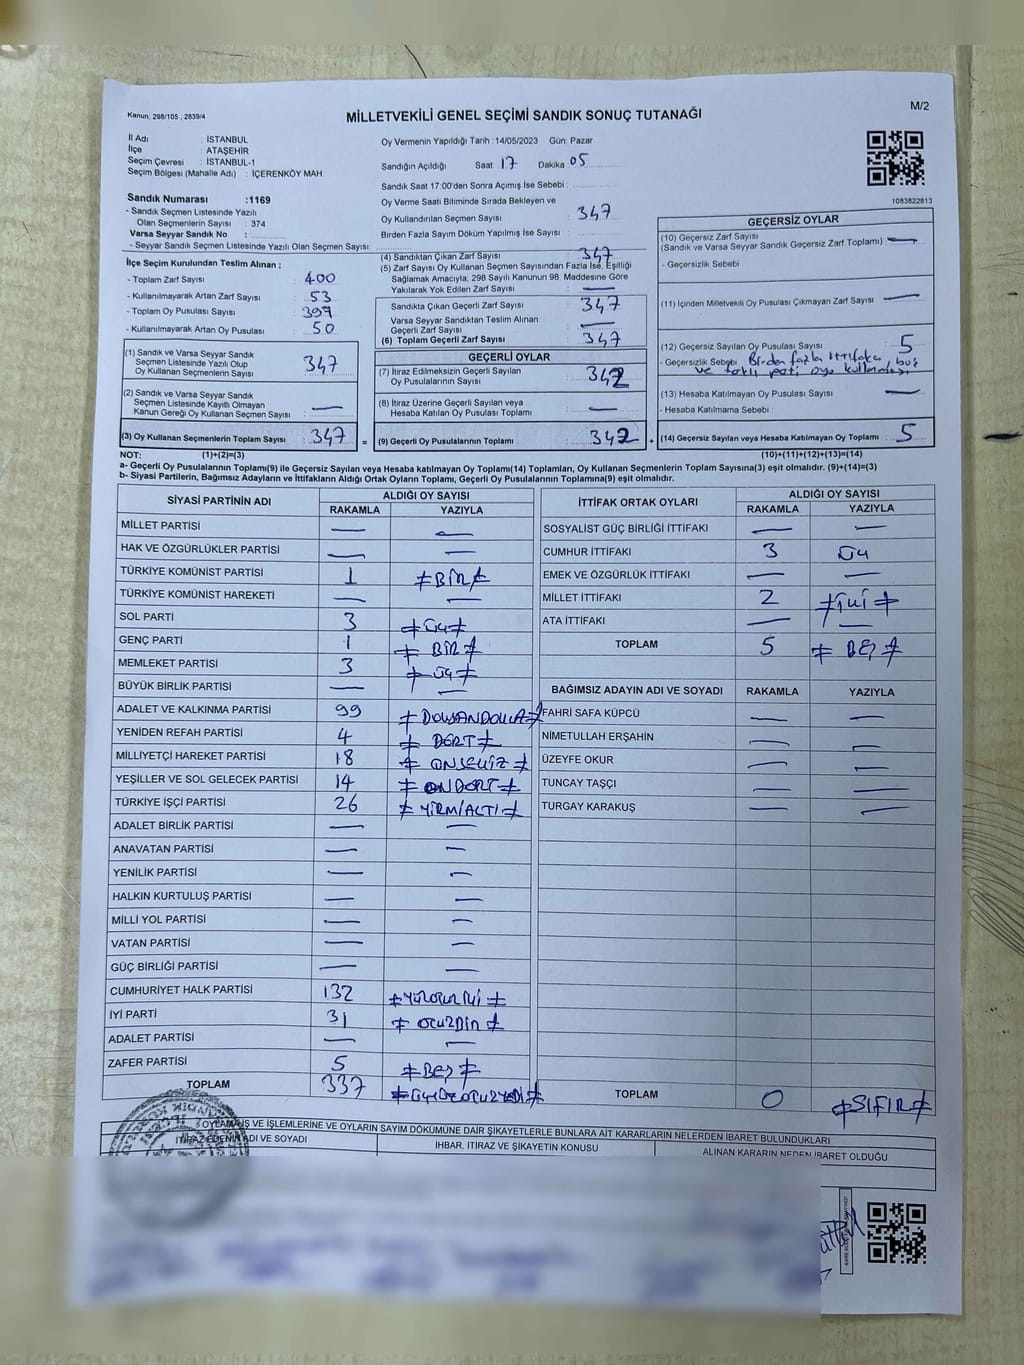 Kanun; 298/105 , 2839/4
MİLLETVEKİLİ GENEL SEÇİMİ SANDIK SONUÇ TUTANAĞI
M/2
İl Adı : İSTANBUL
İlçe : ATAŞEHİR
Seçim Çevresi : İSTANBUL-1
Seçim Bölgesi (Mahalle Adı) : İÇERENKÖY MAH
Oy Vermenin Yapıldığı Tarih :14/05/2023 Gün: Pazar
Sandığın Açıldığı Saat: 17 Dakika: 05
Sandık Saat 17:00'den Sonra Açımış İse Sebebi :
Oy Verme Saati Bitiminde Sırada Bekleyen ve
Oy Kullandırılan Seçmen Sayısı : 347
Birden Fazla Sayım Döküm Yapılmış İse Sayısı :
1083822813
Sandık Numarası :1169
- Sandık Seçmen Listesinde Yazılı
Olan Seçmenlerin Sayısı : 374
Varsa Seyyar Sandık No :
- Seyyar Sandık Seçmen Listesinde Yazılı Olan Seçmen Sayısı:
İlçe Seçim Kurulundan Teslim Alınan ;
- Toplam Zarf Sayısı : 400
- Kullanılmayarak Artan Zarf Sayısı : 53
- Toplam Oy Pusulası Sayısı : 397
- Kullanılmayarak Artan Oy Pusulası : 50
(1) Sandık ve Varsa Seyyar Sandık
Seçmen Listesinde Yazılı Olup
Oy Kullanan Seçmenlerin Sayısı : 347
(2) Sandık ve Varsa Seyyar Sandık
Seçmen Listesinde Kayıtlı Olmayan
Kanun Gereği Oy Kullanan Seçmen Sayısı : —
(3) Oy Kullanan Seçmenlerin Toplam Sayısı : 347 =
(4) Sandıktan Çıkan Zarf Sayısı : 347
(5) Zarf Sayısı Oy Kullanan Seçmen Sayısından Fazla İse, Eşitliği
Sağlamak Amacıyla; 298 Sayılı Kanunun 98. Maddesine Göre
Yakılarak Yok Edilen Zarf Sayısı : —
Sandıkta Çıkan Geçerli Zarf Sayısı : 347
Varsa Seyyar Sandıktan Teslim Alınan
Geçerli Zarf Sayısı : —
(6) Toplam Geçerli Zarf Sayısı : 347
GEÇERLİ OYLAR
(7) İtiraz Edilmeksizin Geçerli Sayılan
Oy Pusulalarının Sayısı : 342
(8) İtiraz Üzerine Geçerli Sayılan veya
Hesaba Katılan Oy Pusulası Toplamı : —
(9) Geçerli Oy Pusulalarının Toplamı : 342 +
GEÇERSİZ OYLAR
(10) Geçersiz Zarf Sayısı
(Sandık ve Varsa Seyyar Sandık Geçersiz Zarf Toplamı) : —
- Geçersizlik Sebebi
(11) İçinden Milletvekili Oy Pusulası Çıkmayan Zarf Sayısı : —
(12) Geçersiz Sayılan Oy Pusulası Sayısı : 5
- Geçersizlik Sebebi : Birden fazla ittifaka, boş
ve farklı parti oyu kullanılması
(13) Hesaba Katılmayan Oy Pusulası Sayısı : —
- Hesaba Katılmama Sebebi :
(14) Geçersiz Sayılan veya Hesaba Katılmayan Oy Toplamı : 5
NOT: (1)+(2)=(3) (10)+(11)+(12)+(13)=(14)
a- Geçerli Oy Pusulalarının Toplamı(9) ile Geçersiz Sayılan veya Hesaba katılmayan Oy Toplamı(14) Toplamları, Oy Kullanan Seçmenlerin Toplam Sayısına(3) eşit olmalıdır. (9)+(14)=(3)
b- Siyasi Partilerin, Bağımsız Adayların ve İttifakların Aldığı Ortak Oyların Toplamı, Geçerli Oy Pusulalarının Toplamına(9) eşit olmalıdır.
SİYASİ PARTİNİN ADI ALDIĞI OY SAYISI
RAKAMLA YAZIYLA
MİLLET PARTİSİ — —
HAK VE ÖZGÜRLÜKLER PARTİSİ — —
TÜRKİYE KOMÜNİST PARTİSİ 1 ≠BİR≠
TÜRKİYE KOMÜNİST HAREKETİ — —
SOL PARTİ 3 ≠ÜÇ≠
GENÇ PARTİ 1 ≠ BİR ≠
MEMLEKET PARTİSİ 3 ≠ ÜÇ ≠
BÜYÜK BİRLİK PARTİSİ — —
ADALET VE KALKINMA PARTİSİ 99 ≠ DOKSANDOKUZ ≠
YENİDEN REFAH PARTİSİ 4 ≠ DÖRT ≠
MİLLİYETÇİ HAREKET PARTİSİ 18 ≠ ONSEKİZ ≠
YEŞİLLER VE SOL GELECEK PARTİSİ 14 ≠ ONDÖRT ≠
TÜRKİYE İŞÇİ PARTİSİ 26 ≠ YİRMİALTI ≠
ADALET BİRLİK PARTİSİ — —
ANAVATAN PARTİSİ — —
YENİLİK PARTİSİ — —
HALKIN KURTULUŞ PARTİSİ — —
MİLLİ YOL PARTİSİ — —
VATAN PARTİSİ — —
GÜÇ BİRLİĞİ PARTİSİ — —
CUMHURİYET HALK PARTİSİ 132 ≠YÜZOTUZİKİ ≠
İYİ PARTİ 31 ≠ OTUZBİR ≠
ADALET PARTİSİ — —
ZAFER PARTİSİ 5 ≠BEŞ ≠
TOPLAM 337 ≠ÜÇYÜZOTUZYEDİ≠
İTTİFAK ORTAK OYLARI ALDIĞI OY SAYISI
RAKAMLA YAZIYLA
SOSYALİST GÜÇ BİRLİĞİ İTTİFAKI — —
CUMHUR İTTİFAKI 3 ÜÇ
EMEK VE ÖZGÜRLÜK İTTİFAKI — —
MİLLET İTTİFAKI 2 ≠İKİ ≠
ATA İTTİFAKI — —
TOPLAM 5 ≠ BEŞ ≠
BAĞIMSIZ ADAYIN ADI VE SOYADI RAKAMLA YAZIYLA
FAHRİ SAFA KÜPCÜ — —
NİMETULLAH ERŞAHİN — —
ÜZEYFE OKUR — —
TUNCAY TAŞÇI — —
TURGAY KARAKUŞ — —
TOPLAM 0 ≠SIFIR≠
OYLAMA İŞ VE İŞLEMLERİNE VE OYLARIN SAYIM DÖKÜMÜNE DAİR ŞİKAYETLERLE BUNLARA AİT KARARLARIN NELERDEN İBARET BULUNDUKLARI
İTİRAZ EDENİN ADI VE SOYADI IHBAR, ITIRAZ VE ŞİKAYETİN KONUSU ALINAN KARARIN NEDEN İBARET OLDUĞU